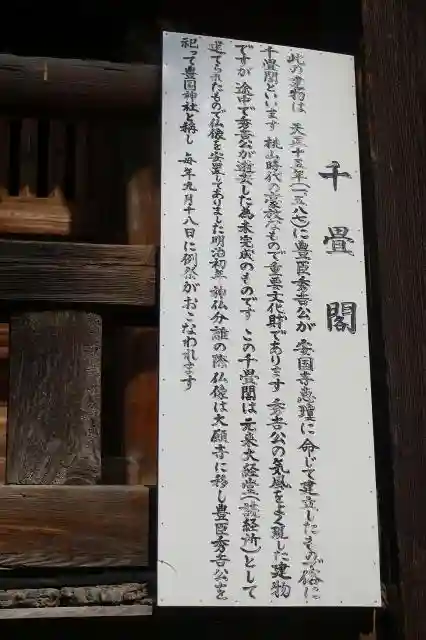 千畳閣
此の建物は 天正十五年(一五八七)に豊臣秀吉公が 安国寺恵瓊に命じて建立したもので俗に
千畳閣といいます 桃山時代の豪放なもので重要文化財であります 秀吉公の気風をよく現した建物
ですが 途中で秀吉公が逝去した為未完成のものです この千畳閣は元来大経堂(読経所)として
建てられたもので仏像を安置してありました明治初年 神仏分離の際 仏像は大願寺に移し豊臣秀吉公を
祀って豊国神社と称し 毎年九月十八日に例祭がおこなわれます